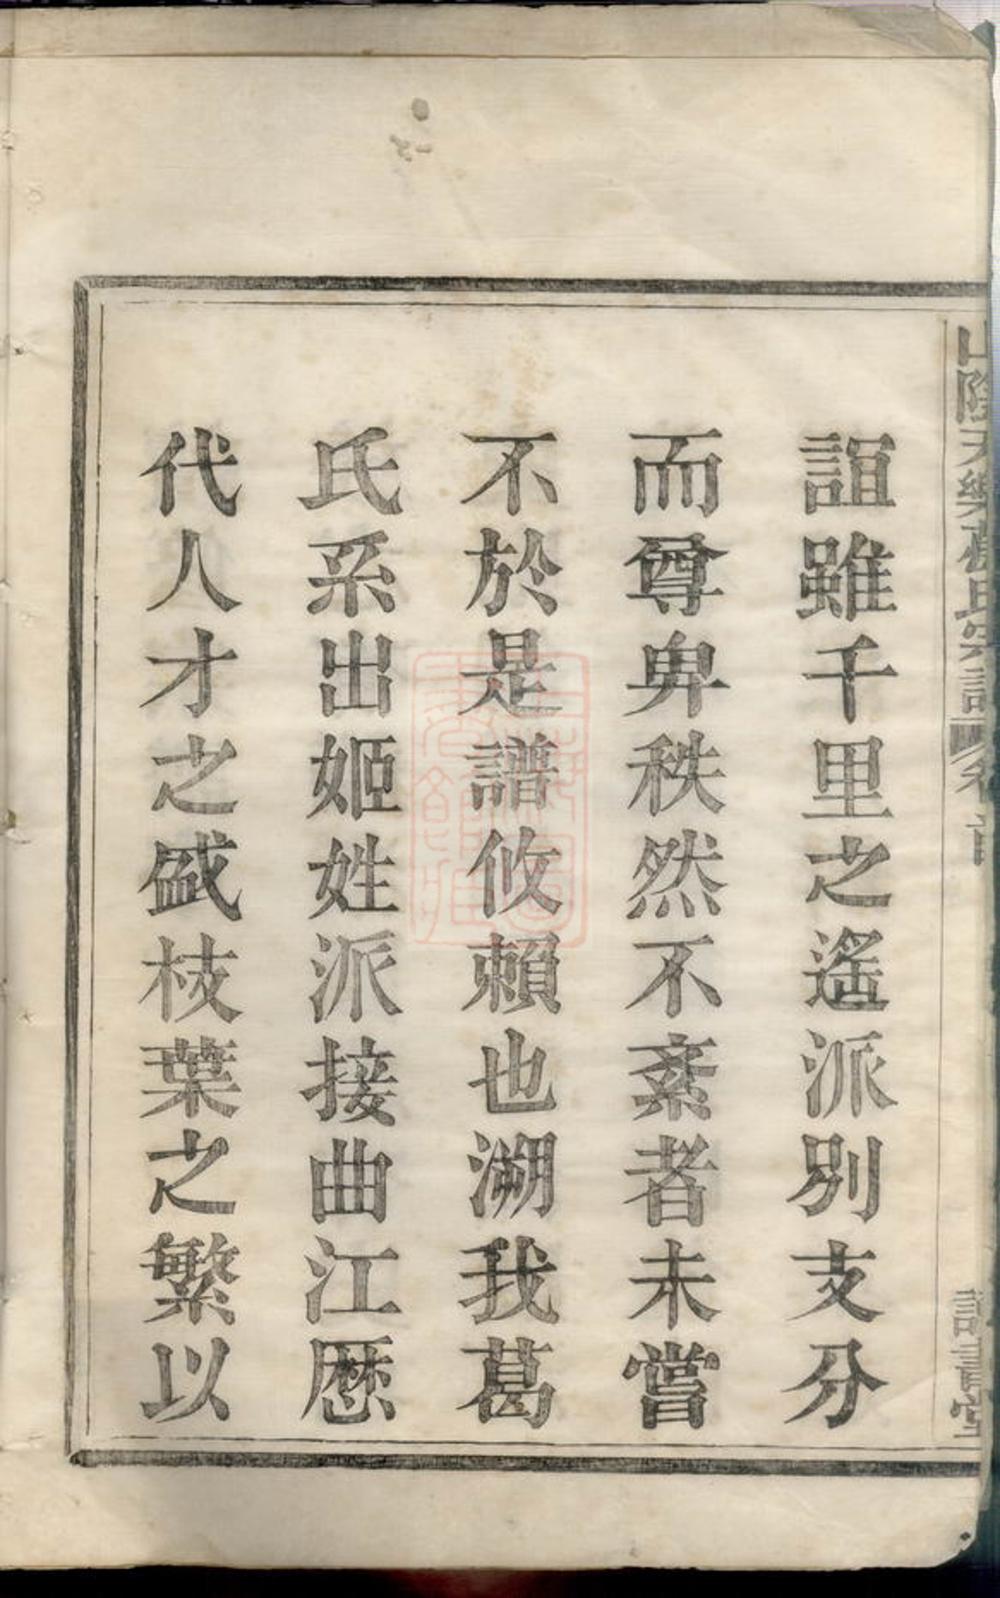 山陰天樂葛氏宗譜 卷首
誼雖千里之遙派別支分
而尊卑秩然不紊者未嘗
不於是譜攸賴也溯我葛
氏系出姬姓派接曲江歷
代人才之盛枝葉之繁以